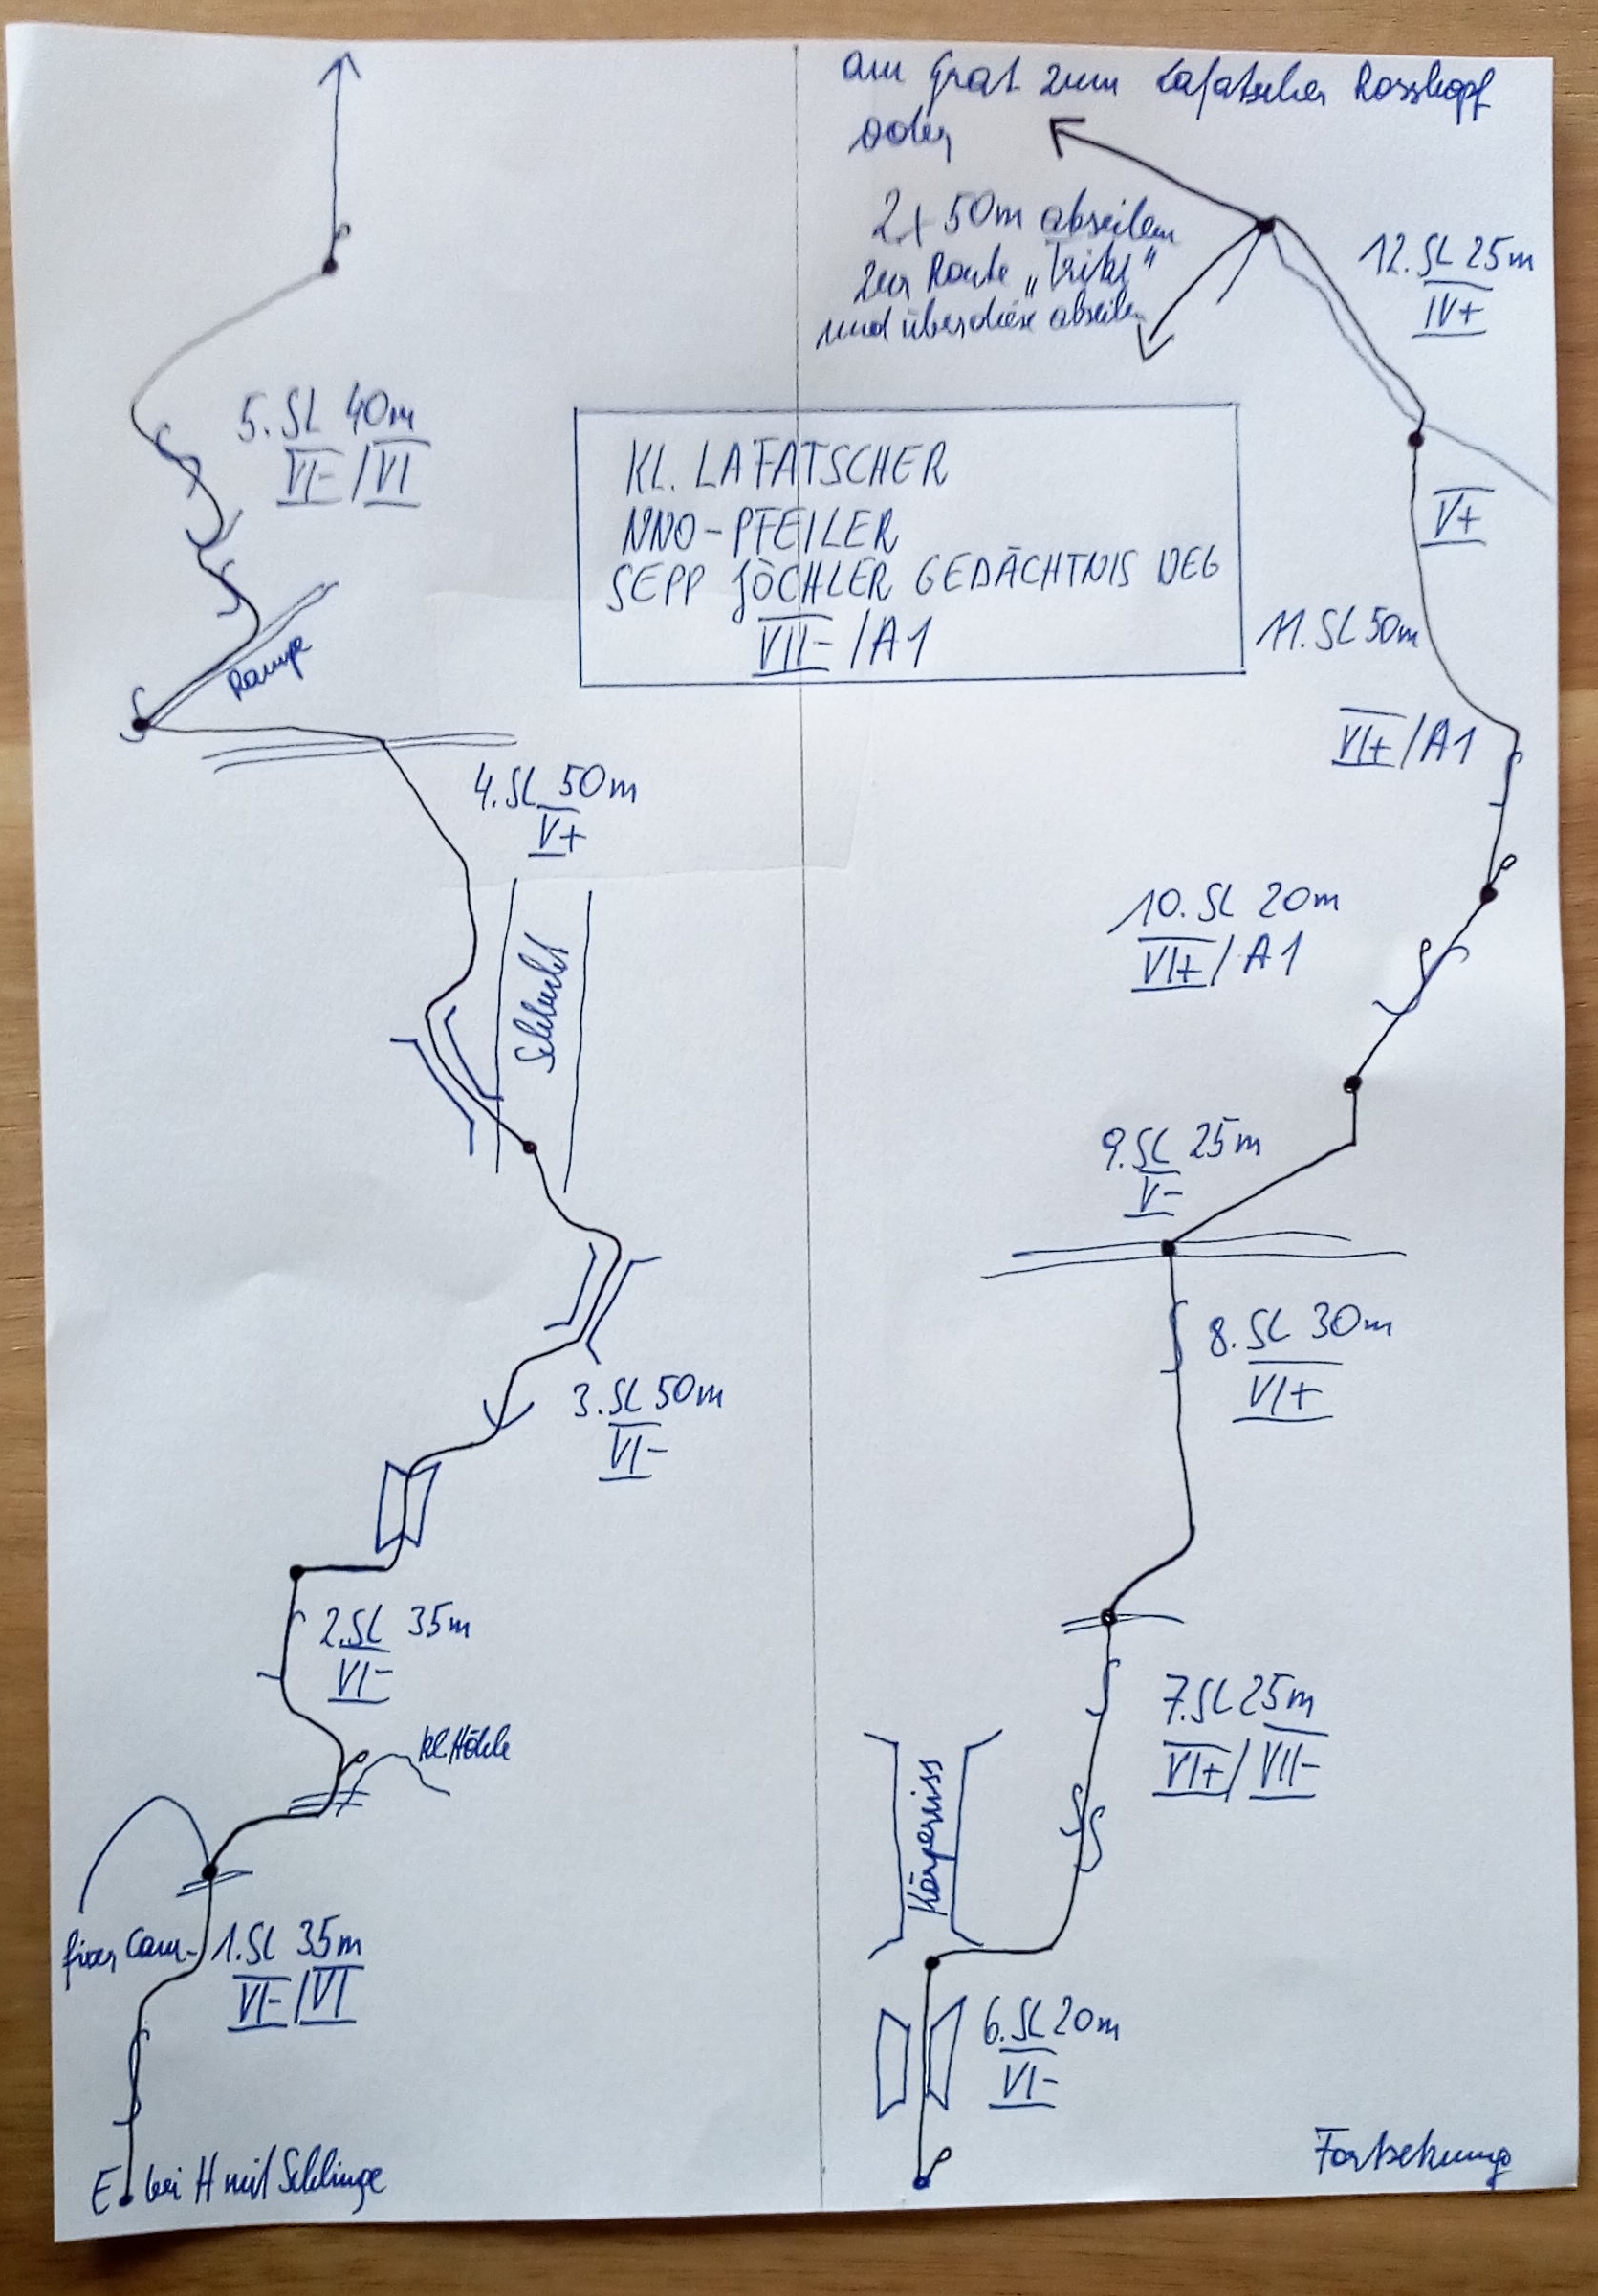 KL. LAFATSCHER
NNO-PFEILER
SEPP JÖCHLER GEDÄCHTNIS WEG
VII- /A1
5. SL 40m
VI- / VI
Rampe
4. SL 50m
V+
Schlucht
3. SL 50m
VI-
2. SL 35m
VI-
kl. Höhle
fixer Cam-
1. SL 35m
VI- / VI
E bei H mit Schlinge
am Grat zum Lafatscher Rosskopf
oder
2x 50m abseilen
zur Route „
und über diese abseilen
12. SL 25m
IV+
V+
11. SL 50m
VI+ / A1
10. SL 20m
VI+ / A1
9. SL 25m
V-
8. SL 30m
VI+
7. SL 25m
VI+ / VII-
Körperriss
6. SL 20m
VI-
Fortsetzung